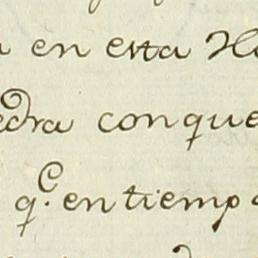 en esta
edra con que
q.e en tiempo